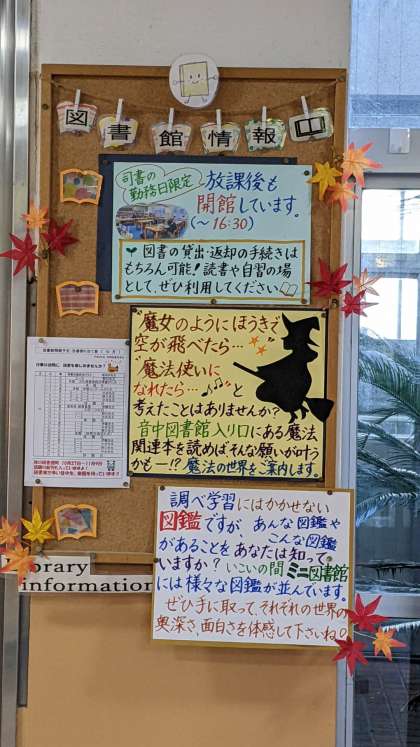 図書館情報
司書の
勤務日限定
放課後も
開館しています。
(〜16:30)
図書の貸出・返却の手続きは
もちろん可能！読書や自習の場
として、ぜひ利用してください
"魔女のようにほうきで
空が飛べたら…
"魔法使いに
なれたら…"と
考えたことはありませんか？
音中図書館入り口にある魔法
関連本を読めばそんな願いが叶う
かも―!? 魔法の世界をご案内します。
調べ学習にはかかせない
図鑑ですが、あんな図鑑や
こんな図鑑
があることをあなたは知って
いますか？いこいの間ミニ図書館
には様々な図鑑が並んでいます。
ぜひ手に取って、それぞれの世界の
奥深さ、面白さを体感して下さいね
brary
information